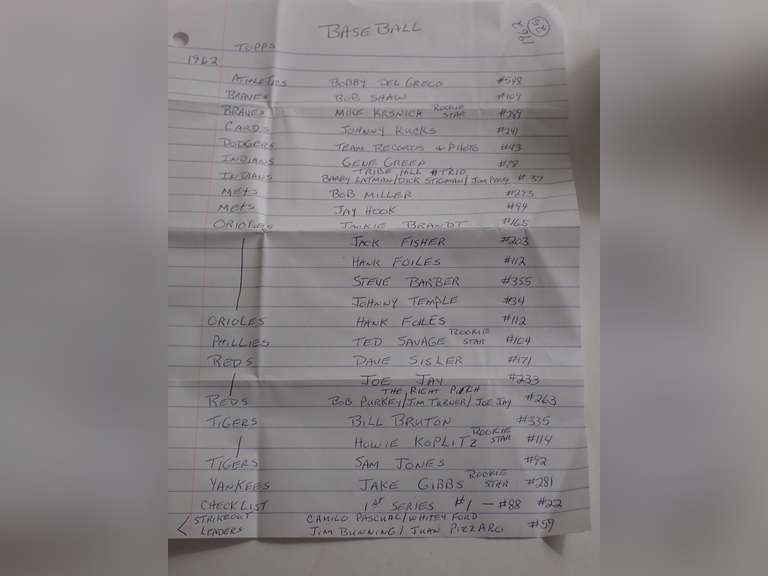 BASEBALL
TOPPS
1962
ATHLETICS BOBBY DEL GRECO #548
BRAVES BOB SHAW #109
BRAVES MIKE KRSNICH ROOKIE STAR #289
CARDS JOHNNY KUCKS #241
DODGERS TEAM RECORDS & PILOTS #43
INDIANS GENE GREEN #78
TRIBE HILL TRIO
INDIANS BARRY LATMAN/DICK STIGMAN/JIM PERRY #37
METS BOB MILLER #293
METS JAY HOOK #94
ORIOLES JACKIE BRANDT #165
JACK FISHER #203
HANK FOILES #112
STEVE BARBER #355
JOHNNY TEMPLE #34
ORIOLES HANK FOILES #112
PHILLIES TED SAVAGE ROOKIE STAR #104
REDS DAVE SISLER #171
JOE JAY #233
THE RIGHT PITCH
REDS BOB PURKEY/JIM TURNER/JOE JAY #263
TIGERS BILL BRUTON #335
HOWIE KOPLITZ ROOKIE STAR #114
TIGERS SAM JONES #92
YANKEES JAKE GIBBS ROOKIE STAR #281
CHECKLIST 1ST SERIES #1 — #88 #22
STRIKEOUT CAMILO PASCUAL/WHITEY FORD
LEADERS JIM BUNNING/JUAN PIZZARO #59